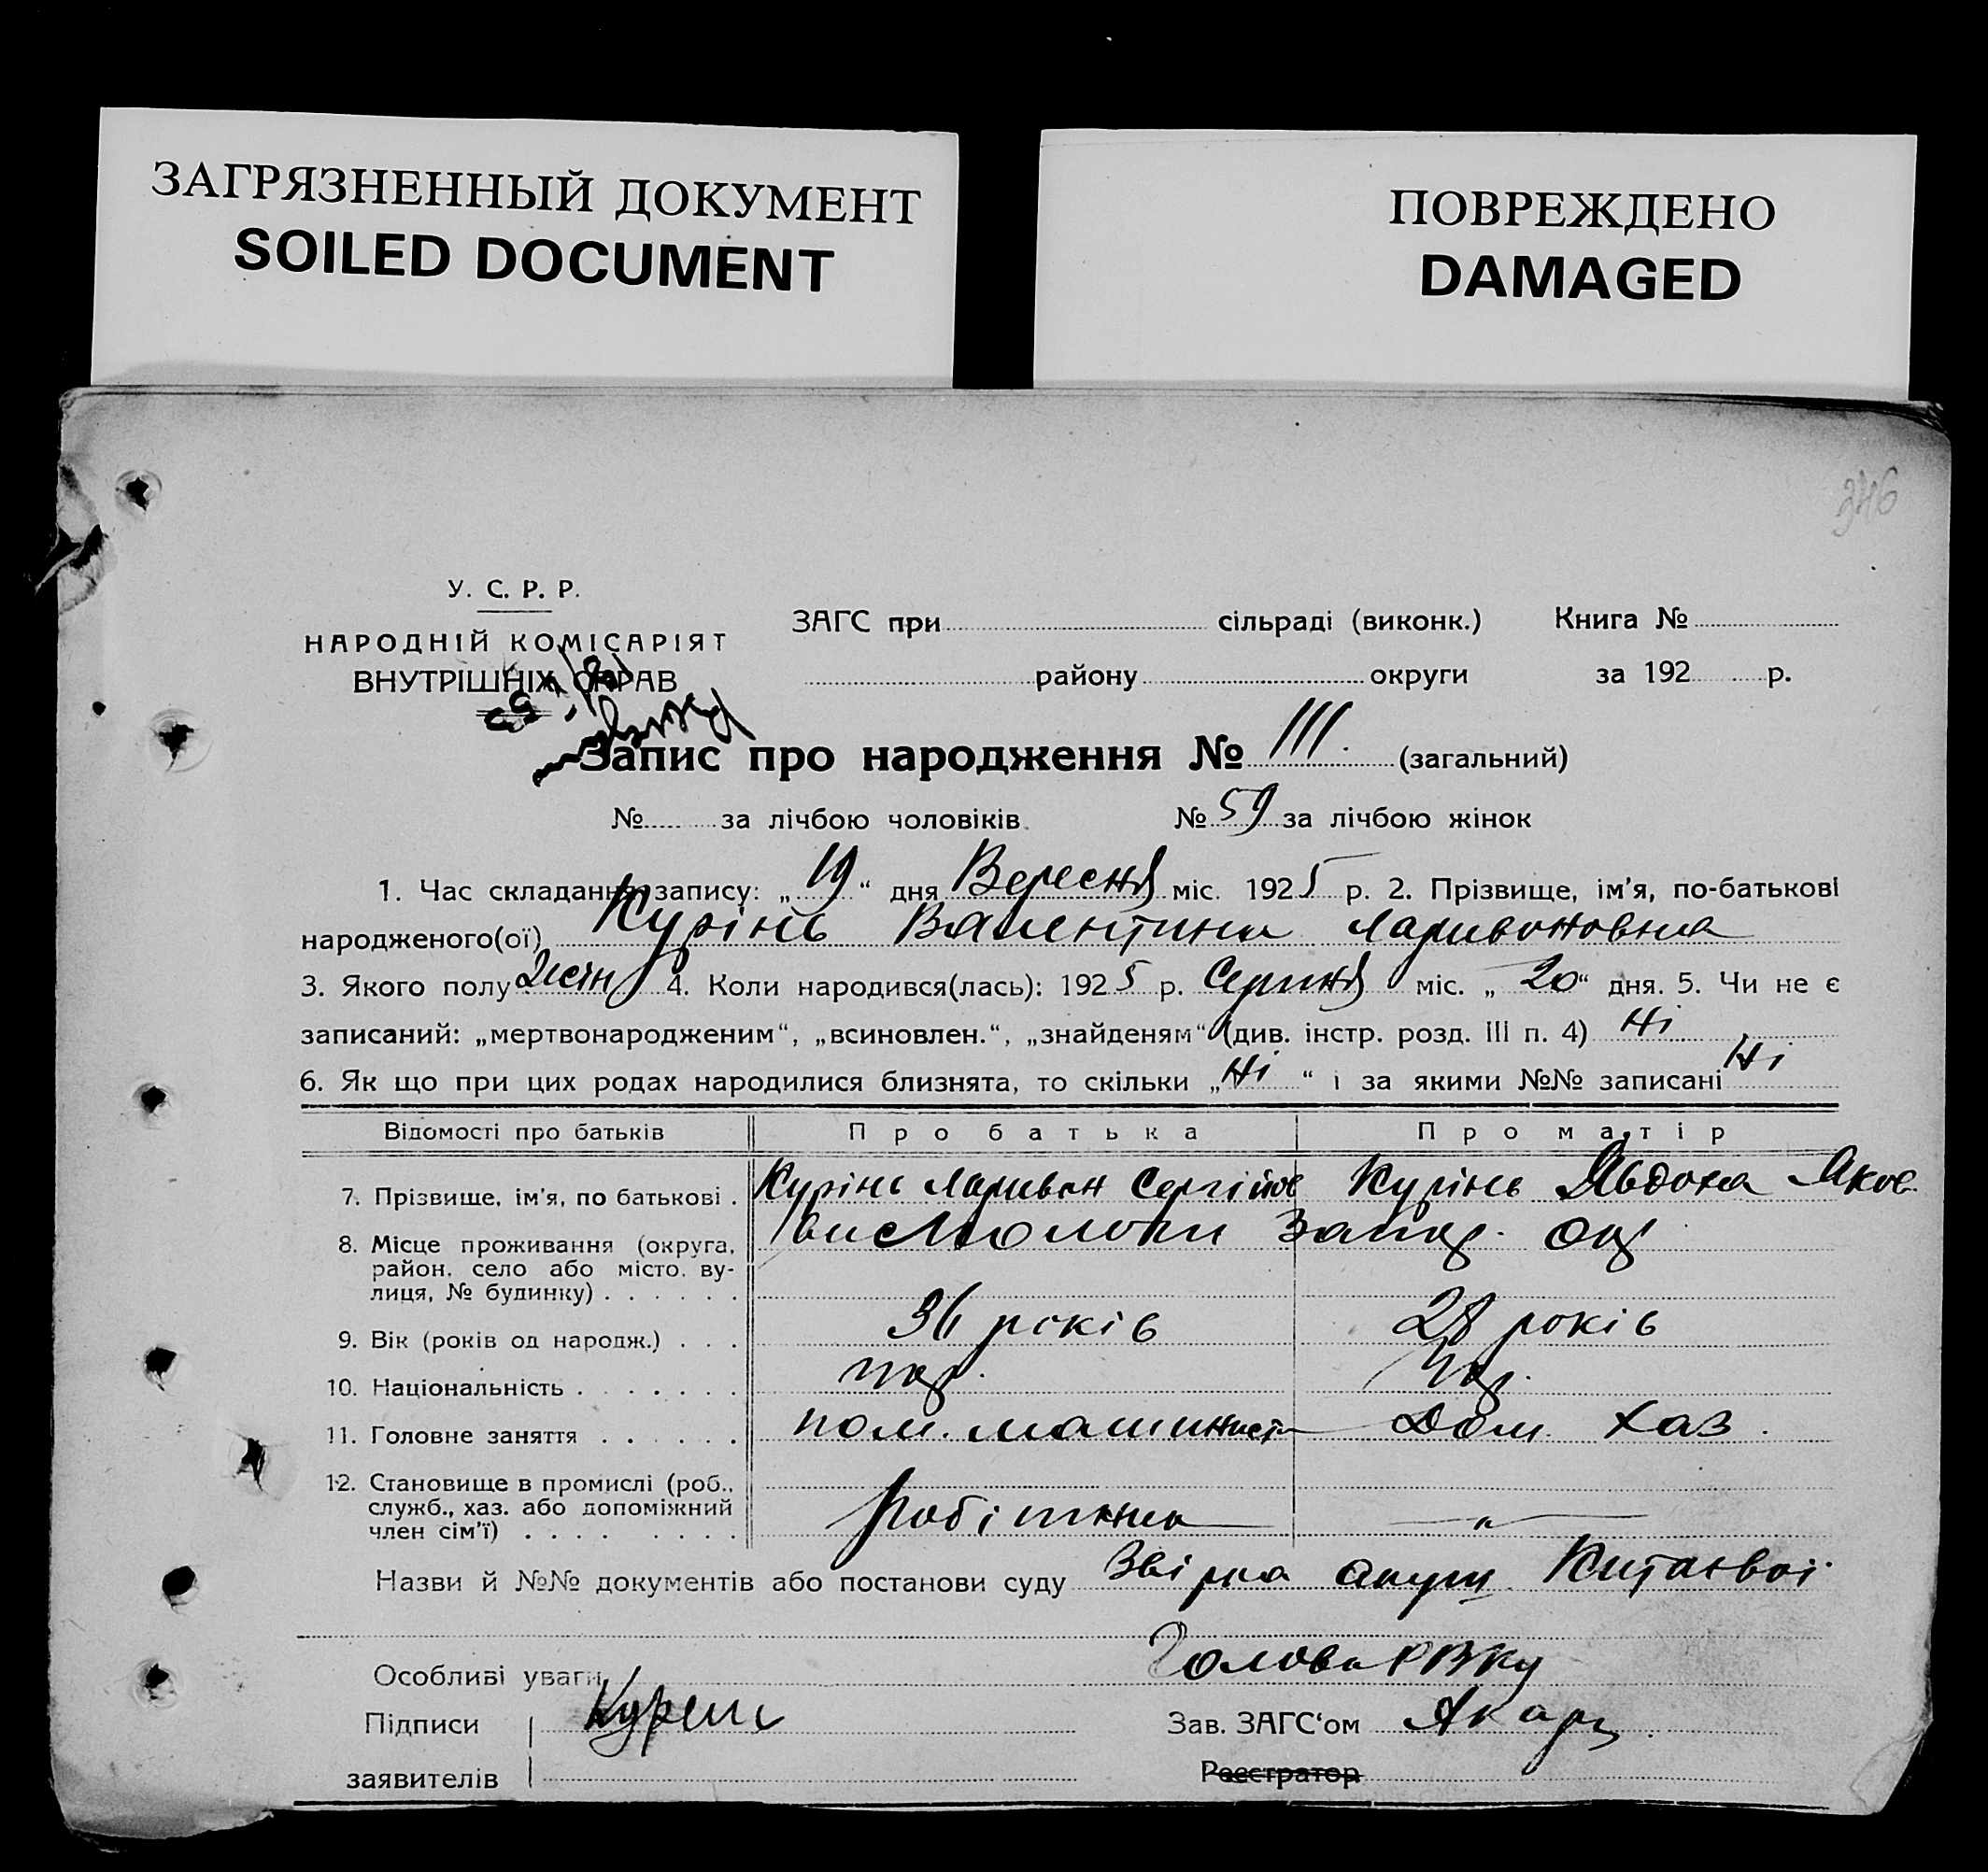 ЗАГРЯЗНЕННЫЙ ДОКУМЕНТ
SOILED DOCUMENT
ПОВРЕЖДЕНО
DAMAGED
346
У. С. Р. Р.
НАРОДНІЙ КОМІСАРІЯТ
ВНУТРІШНІХ СПРАВ
ЗАГС при сільраді (виконк.) Книга №
району округи за 192 р.
Запис про народження № 111. (загальний)
№ за лічбою чоловіків № 59 за лічбою жінок
1. Час складання запису: „19“ дня Вересня міс. 1925 р. 2. Прізвище, ім'я, по-батькові
народженого(ої) Курінь Валентина Ларивоновна
3. Якого полу жін 4. Коли народився(лась): 1925 р. Серпня міс. „20“ дня. 5. Чи не є
записаний: „мертвонародженим“, „всиновлен.“, „знайденям“ (див. інстр. розд. III п. 4) Ні
6. Як що при цих родах народилися близнята, то скільки „Ні“ і за якими №№ записані Ні
Відомості про батьків Про батька Про матір
7. Прізвище, ім'я, по батькові . Курінь Ларивон Сергійов Курінь Явдоха Яков.
8. Місце проживання (округа,
район, село або місто, ву-
лиця, № будинку) . . . . . .
9. Вік (років од народж.) . . . 36 років 28 років
10. Національність . . . . . . .
11. Головне заняття . . . . . . пом. машиниста Дом. хаз.
12. Становище в промислі (роб.,
служб., хаз. або допоміжний
член сім'ї) . . . . . . . . робітник — „ —
Назви й №№ документів або постанови суду акуш. Китаєвої
Особливі уваги Голова РВКу
Підписи Зав. ЗАГС‘ом
заявителів Реєстратор